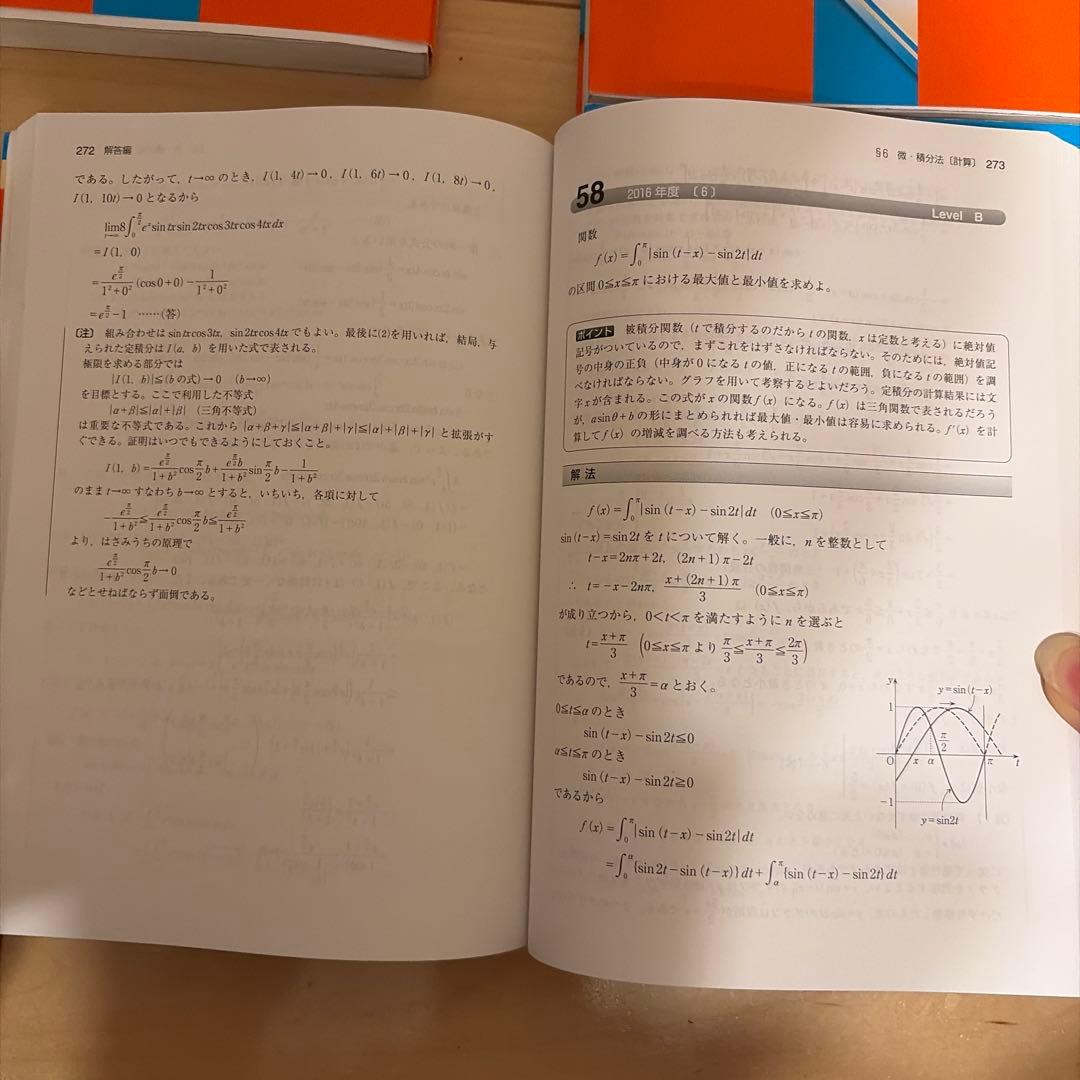 272 解答編
である。したがって, t→∞ のとき, I(1, 4t)→0, I(1, 6t)→0, I(1, 8t)→0,
I(1, 10t)→0 となるから
lim_{t→∞} 8∫_0^{π/2} e^x sin tx sin 2tx cos 3tx cos 4tx dx
=I(1, 0)
=e^{π/2}/(1²+0²) (cos0+0) − 1/(1²+0²)
=e^{π/2}−1 ……(答)
〔注〕 組み合わせは sin tx cos 3tx, sin 2tx cos 4tx でもよい。最後に(2)を用いれば, 結局, 与
えられた定積分は I(a, b) を用いた式で表される。
極限を求める部分では
|I(1, b)|≦(b の式)→0 (b→∞)
を目標とする。ここで利用した不等式
|α+β|≦|α|+|β| (三角不等式)
は重要な不等式である。これから |α+β+γ|≦|α+β|+|γ|≦|α|+|β|+|γ| と拡張がす
ぐできる。証明はいつでもできるようにしておくこと。
I(1, b)=e^{π/2}/(1+b²) cos(π/2)b + e^{π/2}b/(1+b²) sin(π/2)b − 1/(1+b²)
のまま t→∞ すなわち b→∞ とすると, いちいち, 各項に対して
−e^{π/2}/(1+b²) ≦ e^{π/2}/(1+b²) cos(π/2)b ≦ e^{π/2}/(1+b²)
より, はさみうちの原理で
e^{π/2}/(1+b²) cos(π/2)b→0
などとせねばならず面倒である。
§6 微・積分法〔計算〕 273
58 2016年度 〔6〕
Level B
関数
f(x)=∫_0^π |sin(t−x)−sin2t|dt
の区間 0≦x≦π における最大値と最小値を求めよ。
ポイント 被積分関数 (t で積分するのだから t の関数, x は定数と考える) に絶対値
記号がついているので, まずこれをはずさなければならない。そのためには, 絶対値記
号の中身の正負 (中身が 0 になる t の値, 正になる t の範囲, 負になる t の範囲) を調
べなければならない。グラフを用いて考察するとよいだろう。定積分の計算結果には文
字 x が含まれる。この式が x の関数 f(x) になる。f(x) は三角関数で表されるだろう
が, a sinθ+b の形にまとめられれば最大値・最小値は容易に求められる。f′(x) を計
算して f(x) の増減を調べる方法も考えられる。
解法
f(x)=∫_0^π |sin(t−x)−sin2t|dt (0≦x≦π)
sin(t−x)=sin2t を t について解く。一般に, n を整数として
t−x=2nπ+2t, (2n+1)π−2t
∴ t=−x−2nπ, (x+(2n+1)π)/3 (0≦x≦π)
が成り立つから, 0<t<π を満たすように n を選ぶと
t=(x+π)/3 (0≦x≦π より π/3≦(x+π)/3≦2π/3)
であるので, (x+π)/3=α とおく。
0≦t≦α のとき
sin(t−x)−sin2t≦0
α≦t≦π のとき
sin(t−x)−sin2t≧0
であるから
f(x)=∫_0^π |sin(t−x)−sin2t|dt
=∫_0^α {sin2t−sin(t−x)}dt+∫_α^π {sin(t−x)−sin2t}dt
y
y=sin(t−x)
1
π/2
O x α π t
−1
y=sin2t